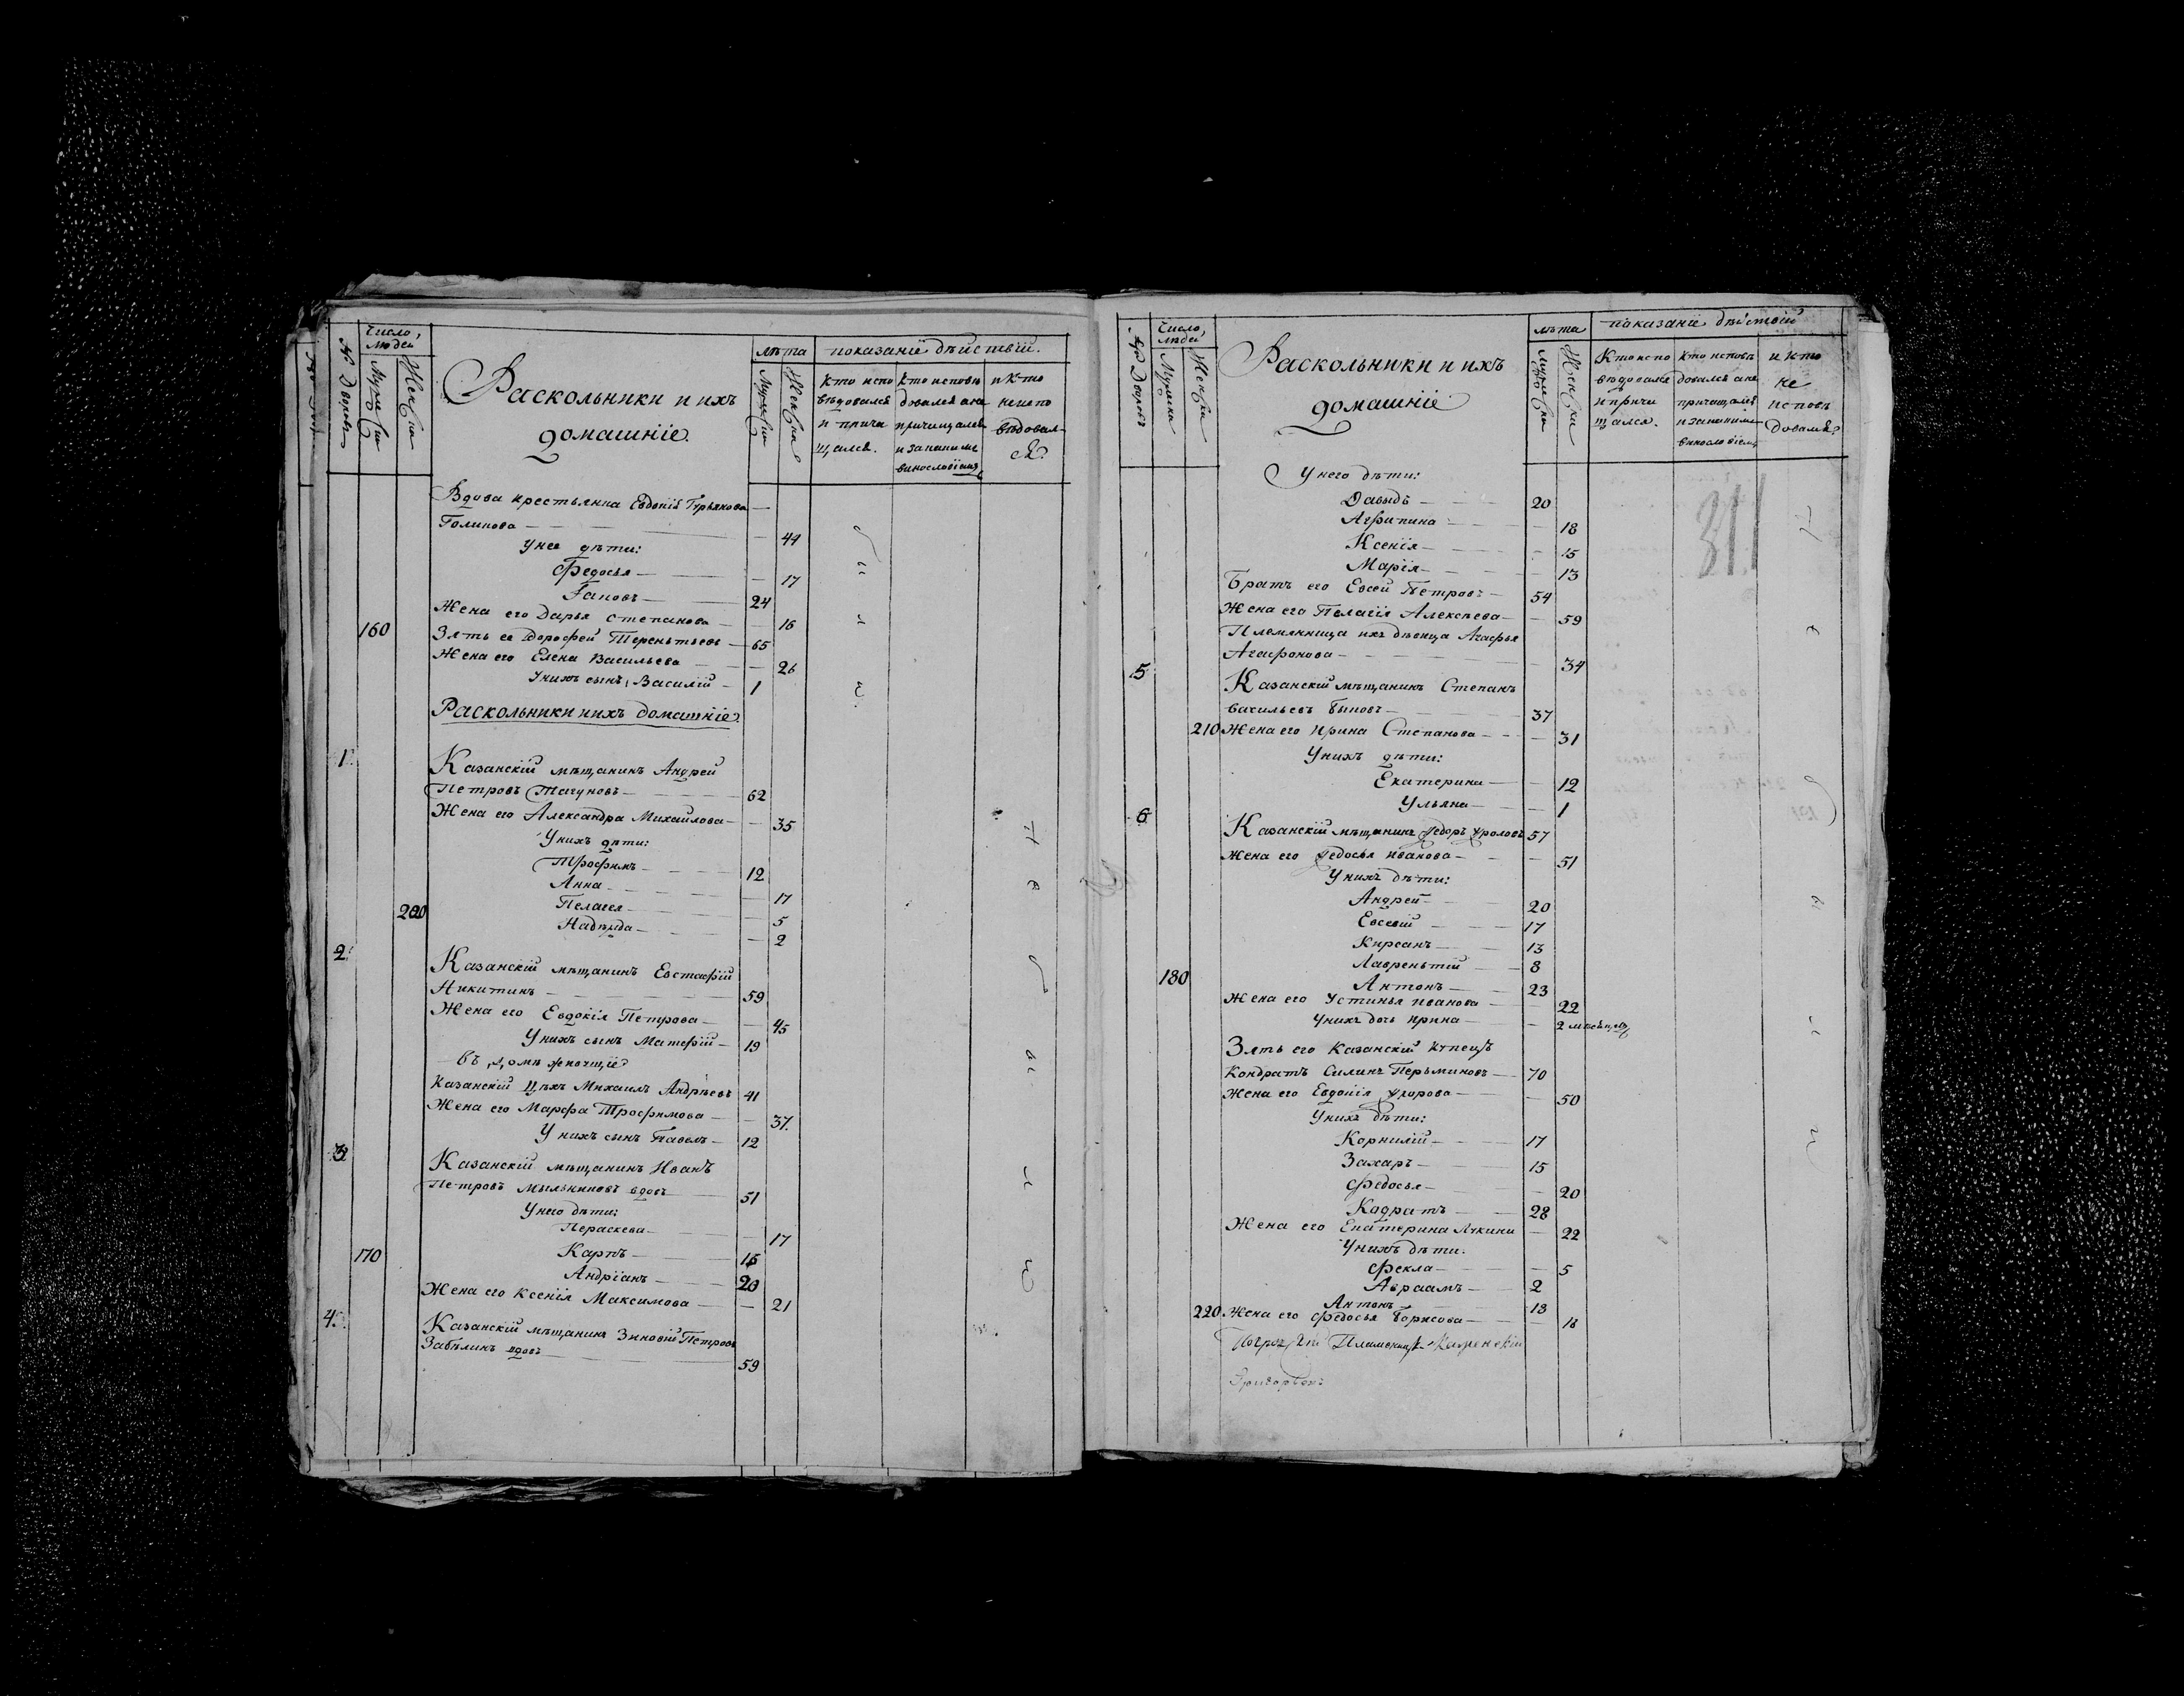 № Дворовъ
Число людей
Мужеска
Женска
Раскольники и ихъ
домашніе.
лѣта
Мужеска
Женска
показаніе дѣйствій.
Кто испо
вѣдовался
и прича
щался.
Кто исповѣ
довался а не
причащался
и за каким
винословіем
и Кто
не испо
вѣдовал
ся?
Вдова крестьянка Евдокія Гурьянова
Голикова 44
У нее дѣти:
Федосья 17
Іаковъ 24
Жена его Дарья Степанова 16
160 Зять ее Дорофей Терентьевъ 65
Жена его Елена Васильева 26
У нихъ сынъ Василій 1
Раскольники и ихъ домашніе.
1. Казанскій мѣщанинъ Андрей
Петровъ 62
Жена его Александра Михайлова 35
У нихъ дѣти:
Трофимъ 12
Анна 17
200 Пелагея 5
Надежда 2
2. Казанскій мѣщанинъ Евстафій
Никитинъ 59
Жена его Евдокія Петрова 45
У нихъ сынъ Матфій 19
Въ домѣ
Казанскій Цѣхъ Михаилъ Андрѣевъ 41
Жена его Марфа Трофимова 37.
У нихъ сынъ Павелъ 12
3 Казанскій мѣщанинъ Иванъ
Петровъ Мыльниковъ вдовъ 51
У него дѣти:
Пераскева 17
170 Карпъ 15
Андріанъ 20
Жена его Ксенія Максимова 21
4. Казанскій мѣщанинъ Зиновій Петровъ
Забѣлинъ вдовъ 59
№ Дворовъ
Число людей
Мужеска
Женска
Раскольники и ихъ
домашніе
лѣта
Мужеска
Женска
показаніе дѣйствій
Кто испо
вѣдовался
и прича
щался.
Кто исповѣ
довался а не
причащался
и за каким
винословіем
и кто
не
исповѣ
довался?
311
У него дѣти:
Давыдъ 20
Агрипина 18
Ксенія 15
Марія 13
Братъ его Евсей Петровъ 54
Жена его Пелагія Алексѣева 59
Племянница ихъ дѣвица Агафья
Агафонова 34
5. Казанскій мѣщанинъ Степанъ
Васильевъ Быковъ 37
210 Жена его Ирина Степанова 31
У нихъ дѣти:
Екатерина 12
Ульяна 1
6. Казанскій мѣщанинъ Федоръ Фроловъ 57
Жена его Федосья Иванова 51
У нихъ дѣти:
Андрей 20
Евсевій 17
Кирсанъ 13
Лаврентій 8
180 Антонъ 23
Жена его Устинья Иванова 22
У нихъ дочь Ирина 2 мѣсяцовъ
Зять его Казанскій Купецъ
Кондратъ Силинъ Перьминовъ 70
Жена его Евдокія 50
У нихъ дѣти:
Корнилій 17
Захаръ 15
Федосья 20
Кодратъ 28
Жена его Екатерина Лукина 22
У нихъ дѣти.
Фекла 5
Авраамъ 2
Антонъ 18
220 Жена его Федосья Борисова 18